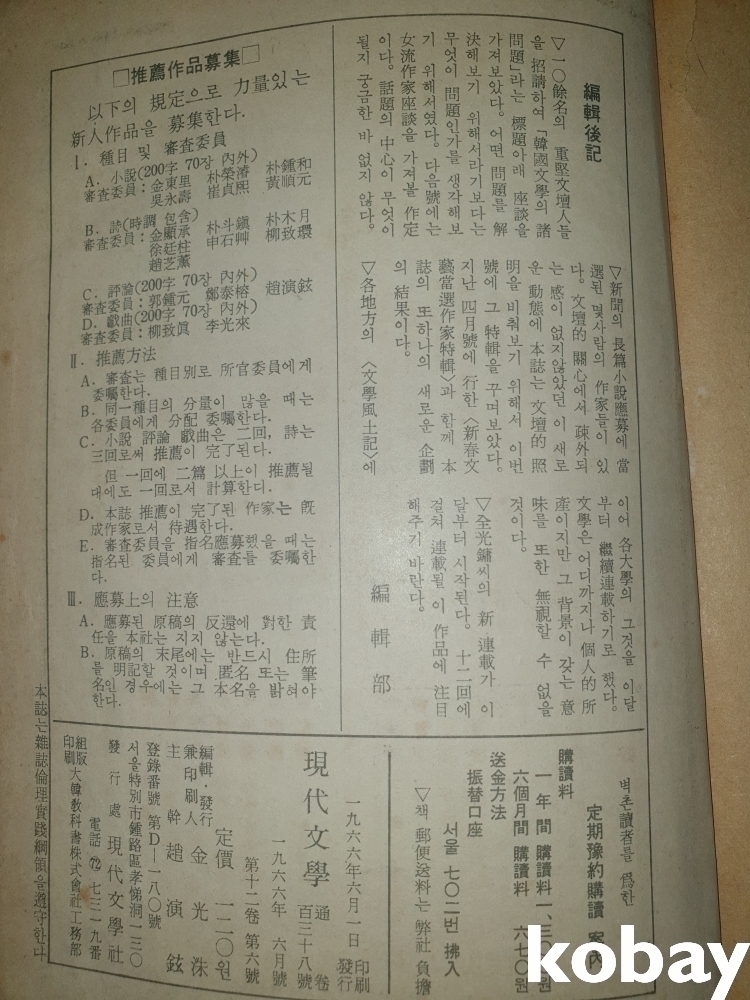 編輯後記
▽一〇餘名의 重堅文壇人들
을 招請하여 「韓國文學의 諸
問題」라는 標題아래 座談을
가져보았다. 어떤 問題를 解
決해보기 위해서라기보다는
무엇이 問題인가를 생각해보
기 위해서였다. 다음號에는
女流作家座談을 가져볼 作定
이다. 話題의 中心이 무엇이
될지 궁금한 바 없지 않다.
▽新聞의 長篇小說應募에 當
選된 몇사람의 作家들이 있
다. 文壇的 關心에서 疎外되
는 感이 없지않았던 이 새로
운 動態에 本誌는 文壇的 照
明을 비춰보기 위해서 이번
號에 그 特輯을 꾸며보았다.
지난 四月號에 行한 〈新春文
藝當選作家特輯〉과 함께 本
誌의 또하나의 새로운 企劃
의 結果이다.
▽各地方의 〈文學風土記〉에
이어 各大學의 그것을 이달
부터 繼續連載하기로 했다.
文學은 어디까지나 個人的 所
產이지만 그 背景이 갖는 意
味를 또한 無視할 수 없을
것이다.
▽全光鏞씨의 新 連載가 이
달부터 시작된다. 十二回에
걸쳐 連載될 이 作品에 注目
해주기 바란다.
編輯部
□推薦作品募集□
以下의 規定으로 力量있는
新人作品을 募集한다.
Ⅰ. 種目 및 審査委員
A. 小說(200字 70장 內外)
審査委員:金東里 朴榮濬 朴鍾和
吳永壽 崔貞熙 黃順元
B. 詩(時調 包含)
審査委員:金顯承 朴斗鎭 朴木月
徐廷柱 申石艸 柳致環
趙芝薰
C. 評論(200字 70장 內外)
審査委員:郭鍾元 鄭泰榕 趙演鉉
D. 戱曲(200字 70장 內外)
審査委員:柳致眞 李光來
Ⅱ. 推薦方法
A. 審査는 種目別로 所官委員에게
委囑한다.
B. 同一種目의 分量이 많을 때는
各委員에게 分配 委囑한다.
C. 小說 評論 戱曲은 二回, 詩는
三回로써 推薦이 完了된다.
但 一回에 二篇 以上이 推薦될
대에도 一回로서 計算한다.
D. 本誌 推薦이 完了된 作家는 旣
成作家로서 待遇한다.
E. 審査委員을 指名應募했을 때는
指名된 委員에게 審査를 委囑한
다.
Ⅲ. 應募上의 注意
A. 應募된 原稿의 反還에 對한 責
任을 本社는 지지 않는다.
B. 原稿의 末尾에는 반드시 住所
를 明記할 것이며 匿名 또는 筆
名인 경우에는 그 本名을 밝혀야
한다.
벽촌讀者를 爲한
定期豫約購讀 案內
購讀料
一年間 購讀料 一、三〇〇원
六個月間 購讀料 六七〇원
送金方法
振替口座
서울 七〇二번 拂入
▽책 郵便送料는 弊社 負擔
一九六六年六月一日 印刷 發行
現代文學 通卷 百三十八號
一九六六年 六月號
第十二卷 第六號
定價 一二〇원
編輯・發行
兼印刷人 金光洙
主幹 趙演鉉
登錄番號 第D—一八〇號
서울特別市鍾路區孝悌洞一三〇
發行處 現代文學社
電話 ㊆ 七三一九番
組版
印刷 大韓敎科書株式會社工務部
本誌는 雜誌倫理實踐綱領을 遵守한다
kobay